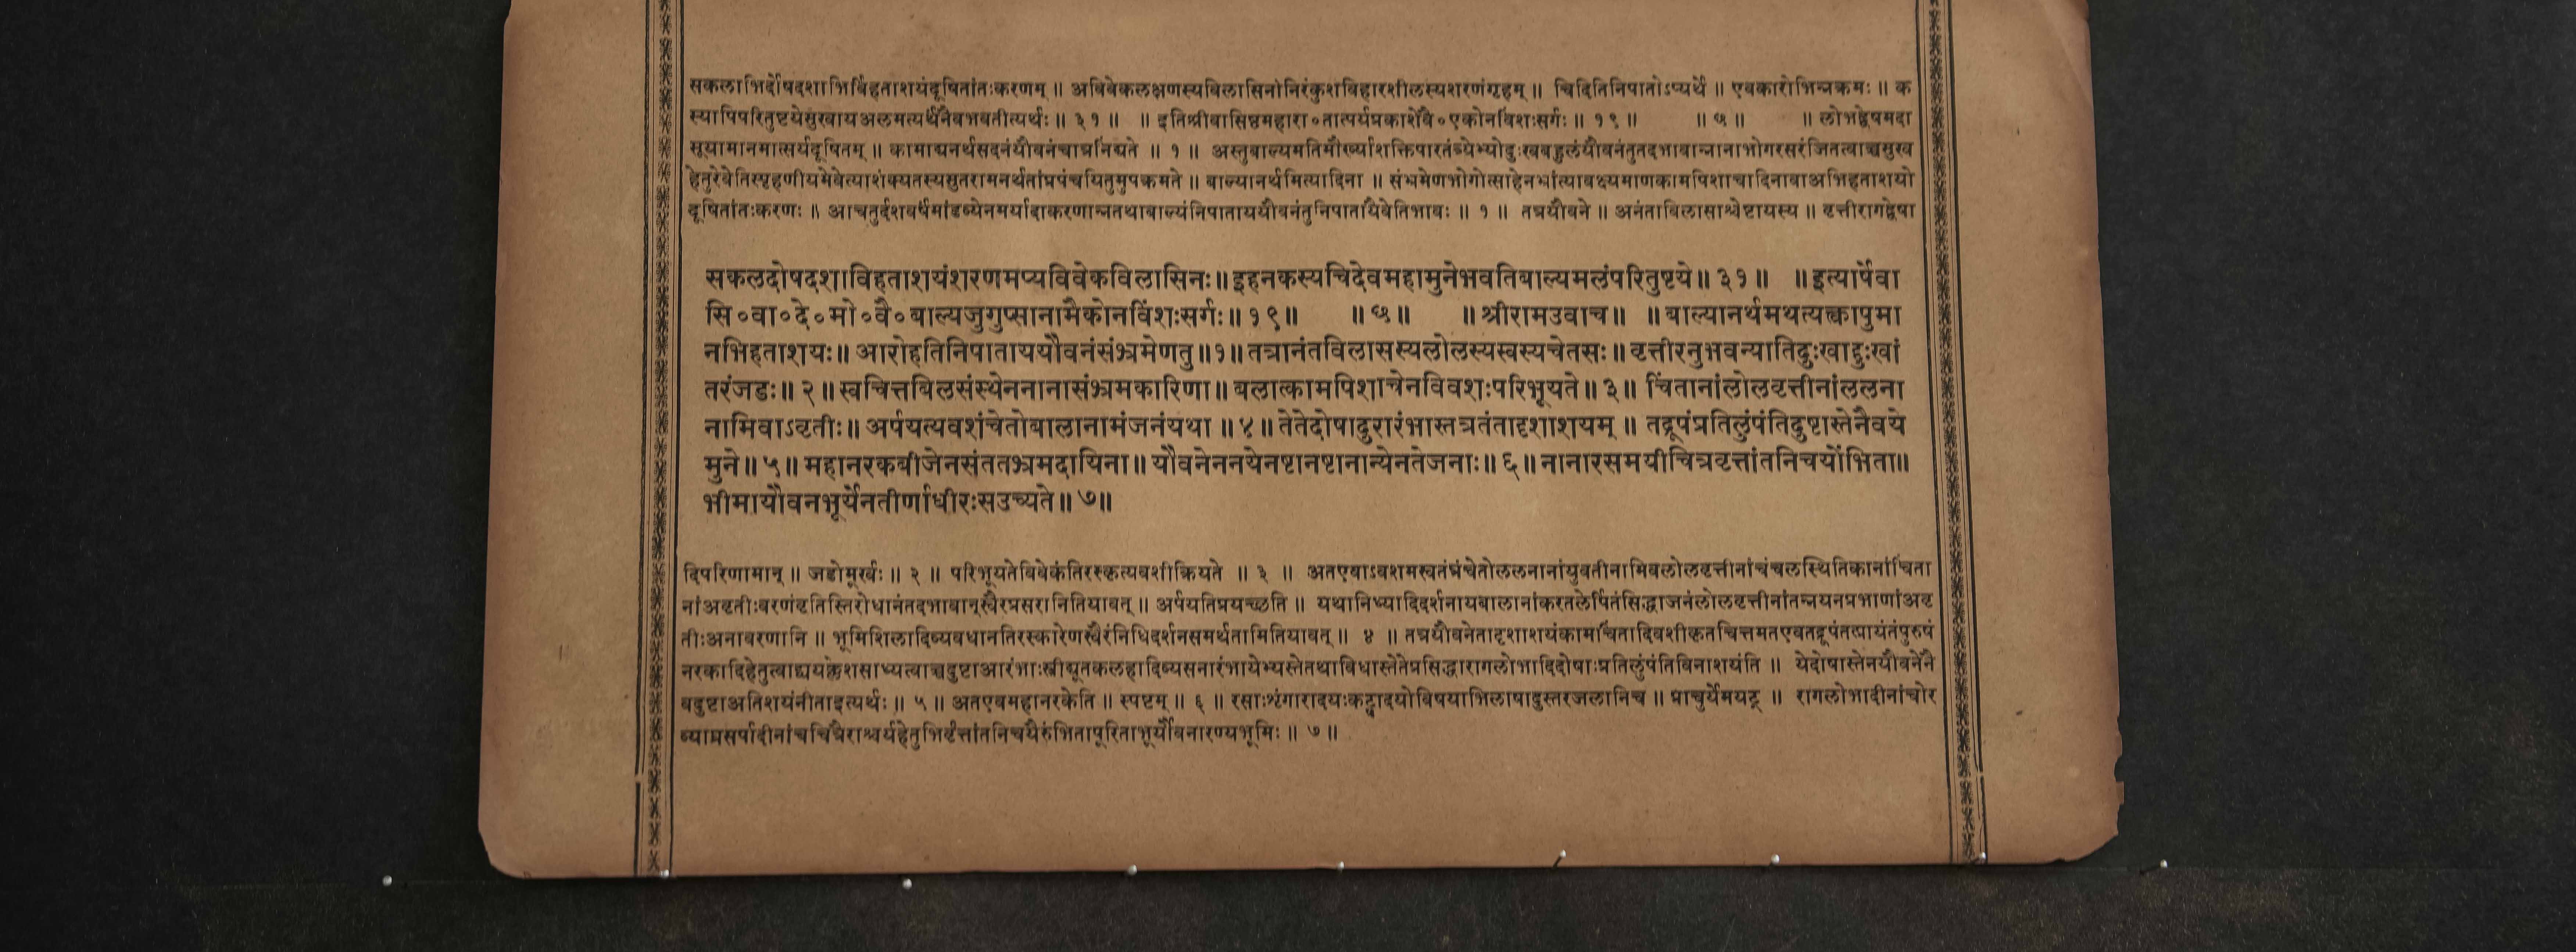 सकलाभिर्दोषदशाभिर्विहताशयंदूषितांतःकरणम् ॥ अविवेकलक्षणस्यविलासिनोनिरंकुशविहारशीलस्यशरणंगृहम् ॥ चिदितिनिपातोऽप्यर्थे ॥ एवकारोभिन्नक्रमः ॥ क
स्यापिपरितुष्टयेसुखायअलमत्यर्थंनैवभवतीत्यर्थः ॥ ३१ ॥ ॥ इतिश्रीवासिष्ठमहारा०तात्पर्यप्रकाशेवै०एकोनविंशःसर्गः ॥ १९ ॥ ॥ ७ ॥ ॥ लोभद्वेषमदा
सूयामानमात्सर्यदूषितम् ॥ कामाद्यनर्थसदनंयौवनंचात्रनिंद्यते ॥ १ ॥ अस्तुबाल्यमतिमौर्ख्याशक्तिपारतंत्र्येभ्योदुःखबहुलंयौवनंतुतदभावान्नानाभोगरसरंजितत्वाच्चसुख
हेतुरेवेतिस्पृहणीयमेवेत्याशंक्यतस्यसुतरामनर्थतांप्रपंचयितुमुपक्रमते ॥ बाल्यानर्थमित्यादिना ॥ संभ्रमेणभोगोत्साहेनभ्रांत्यावक्ष्यमाणकामपिशाचादिनावाअभिहताशयो
दूषितांतःकरणः ॥ आचतुर्दशवर्षंमांडव्येनमर्यादाकरणान्नतथाबाल्यंनिपाताययौवनंतुनिपातायैवेतिभावः ॥ १ ॥ तत्रयौवने ॥ अनंताविलासाश्चेष्टायस्य ॥ वृत्तीरागद्वेषा
सकलदोषदशाविहताशयंशरणमप्यविवेकविलासिनः॥ इहनकस्यचिदेवमहामुनेभवतिबाल्यमलंपरितुष्टये॥ ३१ ॥ ॥ इत्यार्षेवा
सि०वा०दे०मो०वै०बाल्यजुगुप्सानामैकोनविंशःसर्गः॥ १९ ॥ ॥ ७ ॥ ॥ श्रीरामउवाच॥ ॥ बाल्यानर्थमथत्यक्त्वापुमा
नभिहताशयः॥ आरोहतिनिपाताययौवनंसंभ्रमेणतु॥ १॥ तत्रानंतविलासस्यलोलस्यस्वस्यचेतसः॥ वृत्तीरनुभवन्यातिदुःखाद्दुःखां
तरंजडः॥ २ ॥ स्वचित्तबिलसंस्थेननानासंभ्रमकारिणा॥ बलात्कामपिशाचेनविवशःपरिभूयते॥ ३॥ चिंतानांलोलवृत्तीनांललना
नामिवाऽवृतीः॥ अर्पयत्यवशंचेतोबालानामंजनंयथा ॥ ४ ॥ तेतेदोषादुरारंभास्तत्रतंतादृशाशयम् ॥ तद्रूपंप्रतिलुंपंतिदुष्टास्तेनैवये
मुने॥ ५॥ महानरकबीजेनसंततभ्रमदायिना॥ यौवनेननयेनष्टानष्टानान्येनतेजनाः॥ ६॥ नानारसमयीचित्रवृत्तांतनिचयोंभिता॥
भीमायौवनभूर्येनतीर्णाधीरःसउच्यते॥ ७॥
दिपरिणामान् ॥ जडोमूर्खः ॥ २ ॥ परिभूयतेविवेकंतिरस्कृत्यवशीक्रियते ॥ ३ ॥ अतएवाऽवशमस्वतंत्रंचेतोललनानांयुवतीनामिवलोलवृत्तीनांचंचलस्थितिकानांचिंता
नांअवृतीःवरणंवृतिस्तिरोधानंतदभावान्स्वैरप्रसरानितियावत् ॥ अर्पयतिप्रयच्छति ॥ यथानिध्यादिदर्शनायबालानांकरतलेर्पितंसिद्धाजनंलोलवृत्तीनांतन्नयनप्रभाणांअवृ
तीःअनावरणानि ॥ भूमिशिलादिव्यवधानतिरस्कारेणस्वैरंनिधिदर्शनसमर्थतामितियावत् ॥ ४ ॥ तत्रयौवनेतादृशाशयंकामचिंतादिवशीकृतचित्तमतएवतद्रूपंतत्प्रायंतंपुरुषं
नरकादिहेतुत्वाद्द्ययक्लेशसाध्यत्वाच्चदुष्टाआरंभाःस्त्रीद्यूतकलहादिव्यसनारंभायेभ्यस्तेतथाविधास्तेतेप्रसिद्धारागलोभादिदोषाःप्रतिलुंपंतिविनाशयंति ॥ येदोषास्तेनयौवनेनै
वदुष्टाअतिशयंनीताइत्यर्थः ॥ ५ ॥ अतएवमहानरकेति ॥ स्पष्टम् ॥ ६ ॥ रसाःशृंगारादयःकट्वादयोविषयाभिलाषादुस्तरजलानिच ॥ प्राचुर्येमयट् ॥ रागलोभादीनांचोर
व्याघ्रसर्पादीनांचचित्रैराश्चर्यहेतुभिर्वृत्तांतनिचयैरुंभितापूरिताभूर्यौवनारण्यभूमिः ॥ ७ ॥